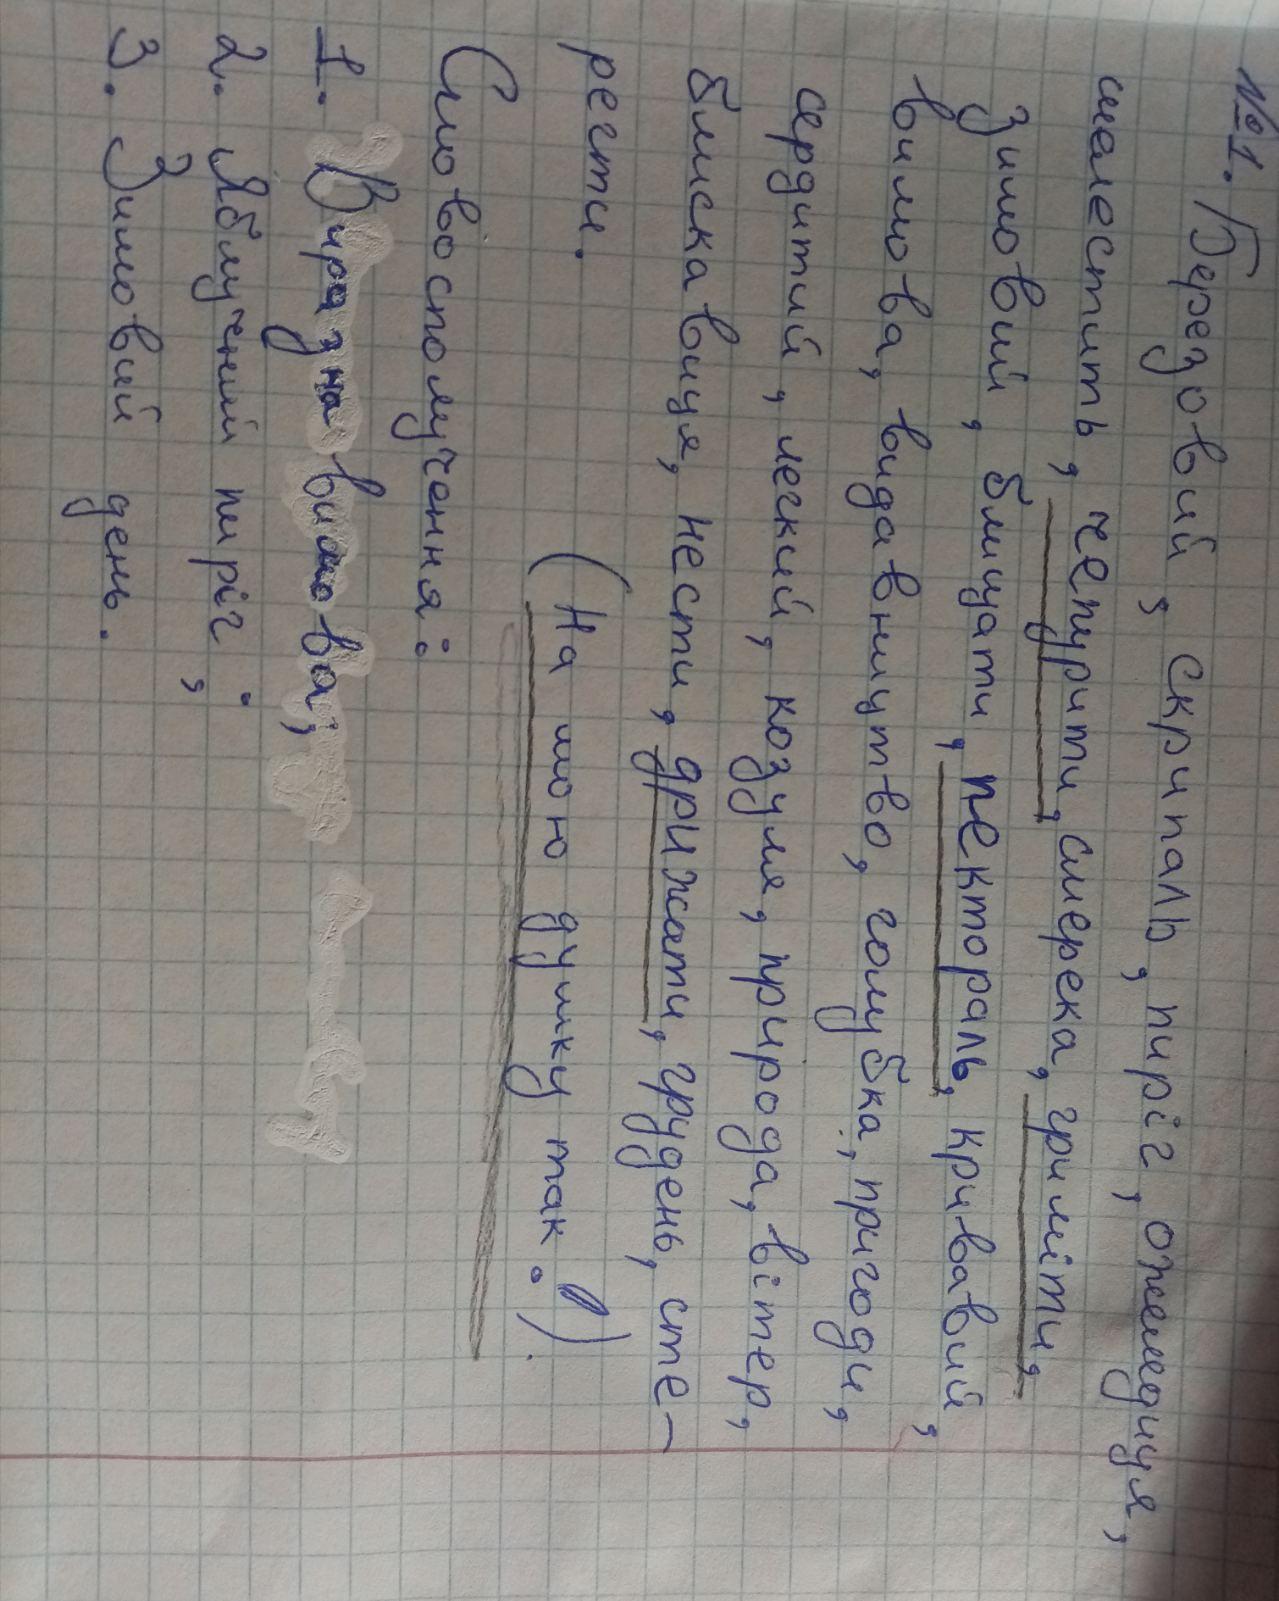 №1. Березовий, скрипаль, пиріг, ожеледиця,
шелестить, чепурити, смерека, гриміти,
зимовий, блищати, пектораль, кривавий,
вимова, видавництво, голубка, пригоди,
сердитий, легкий, козуля, природа, вітер,
блискавиця, нести, дрижати, грудень, сте-
регти.
(На мою думку так.).
Словосполучення:
1. Виразна вимова;
2. Яблучний пиріг;
3. Зимовий день.